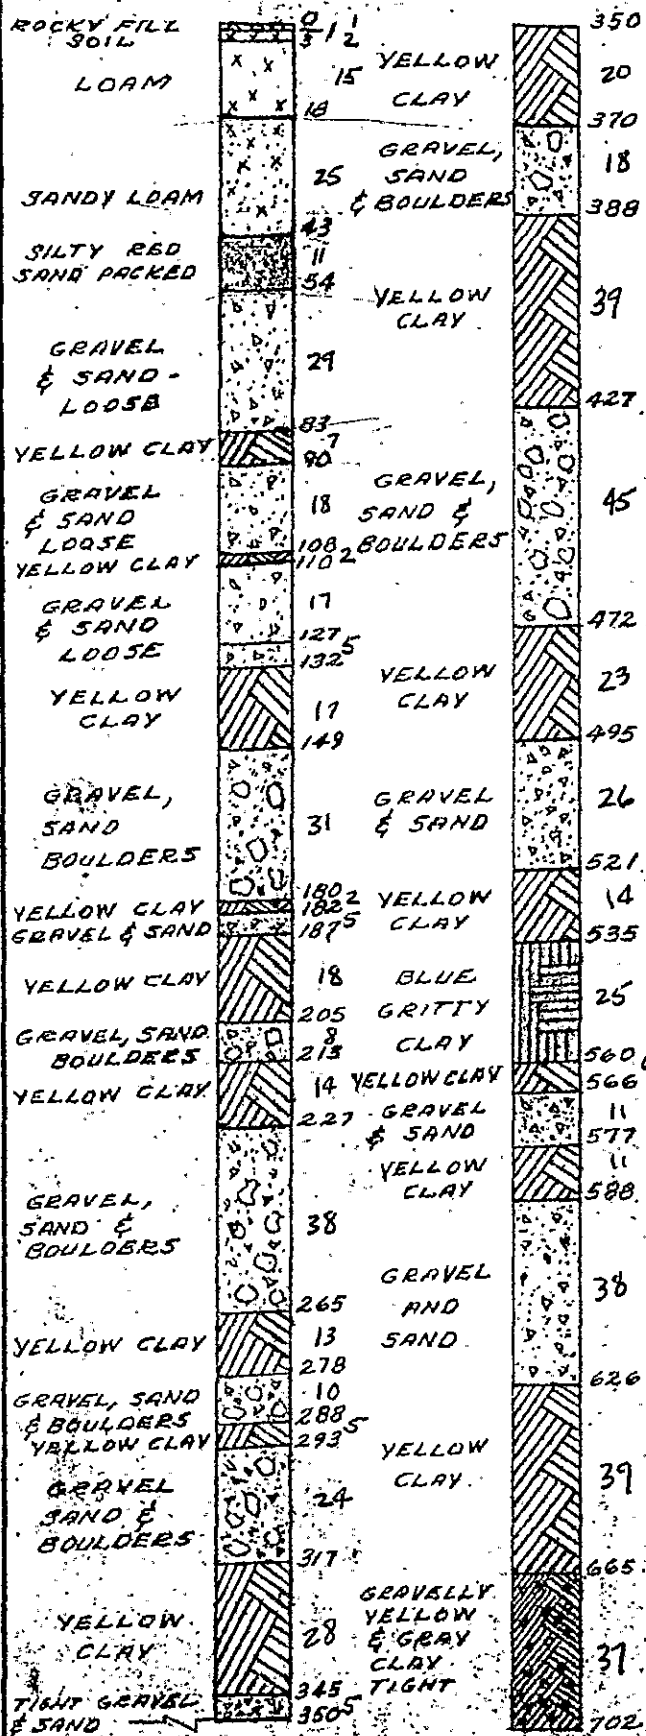 ROCKY FILL
SOIL
0
3
1 1/2
LOAM
15
18
SANDY LOAM
25
43
SILTY RED
SAND PACKED
11
54
GRAVEL
& SAND -
LOOSE
29
83
YELLOW CLAY
7
90
GRAVEL
& SAND
LOOSE
18
108
YELLOW CLAY
2
110
GRAVEL
& SAND
LOOSE
17
127
5
132
YELLOW
CLAY
17
149
GRAVEL,
SAND
BOULDERS
31
180
YELLOW CLAY
2
182
GRAVEL & SAND
5
187
YELLOW CLAY
18
205
GRAVEL, SAND
BOULDERS
8
213
YELLOW CLAY
14
227
GRAVEL,
SAND &
BOULDERS
38
265
YELLOW CLAY
13
278
GRAVEL, SAND
& BOULDERS
10
288
YELLOW CLAY
5
293
GRAVEL
SAND &
BOULDERS
24
317
YELLOW
CLAY
28
345
TIGHT GRAVEL
& SAND
5
350
350
YELLOW
CLAY
20
370
GRAVEL,
SAND
& BOULDERS
18
388
YELLOW
CLAY
39
427
GRAVEL,
SAND &
BOULDERS
45
472
YELLOW
CLAY
23
495
GRAVEL
& SAND
26
521
YELLOW
CLAY
14
535
BLUE
GRITTY
CLAY
25
560
YELLOW CLAY
566
GRAVEL
& SAND
11
577
YELLOW
CLAY
11
588
GRAVEL
AND
SAND
38
626
YELLOW
CLAY
39
665
GRAVELLY
YELLOW
& GRAY
CLAY
TIGHT
37
702